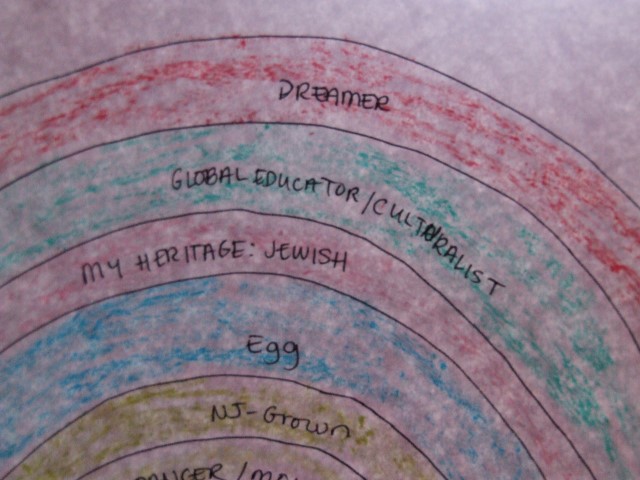 DREAMER
GLOBAL EDUCATOR/CULTURALIST
MY HERITAGE: JEWISH
Egg
NJ-Grown